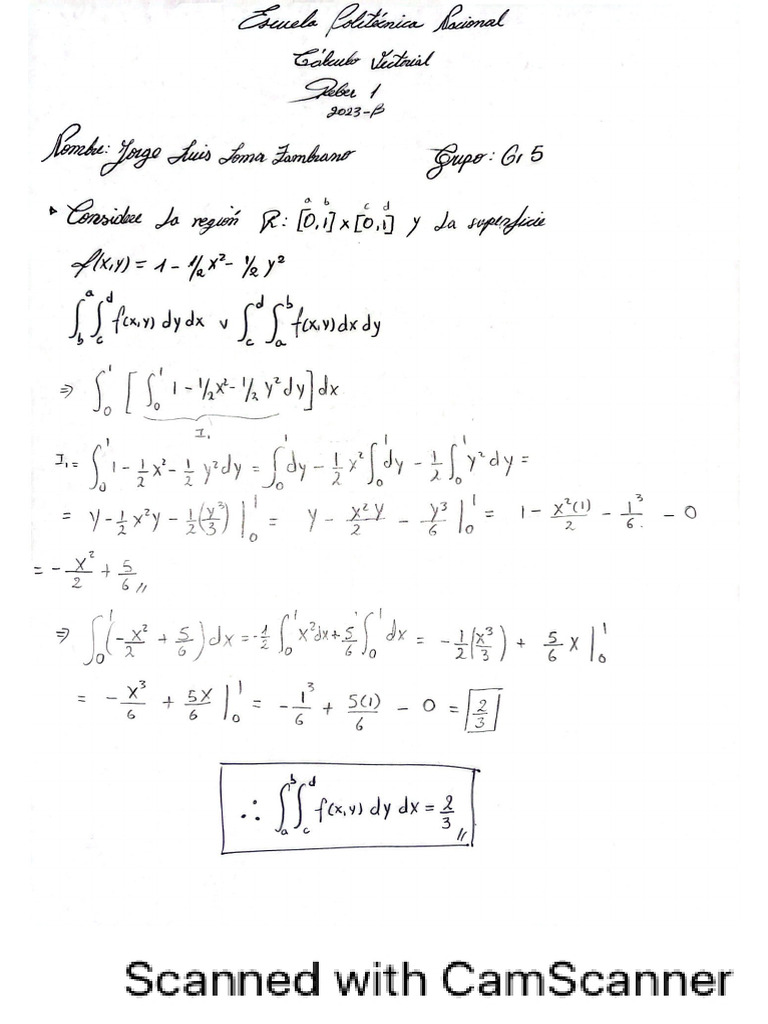 Escuela Politécnica Nacional
Cálculo Vectorial
Deber 1
2023-B
Nombre: Jorge Luis Loma Zambrano Grupo: Gr 5
Considere la región R: [0,1] x [0,1] y la superficie
a b c d
f(x,y) = 1 - 1/2 x² - 1/2 y²
∫_b^a ∫_c^d f(x,y) dy dx ∨ ∫_c^d ∫_a^b f(x,y) dx dy
⇒ ∫_0^1 [ ∫_0^1 1 - 1/2 x² - 1/2 y² dy ] dx
I₁
I₁ = ∫_0^1 1 - 1/2 x² - 1/2 y² dy = ∫_0^1 dy - 1/2 x² ∫_0^1 dy - 1/2 ∫_0^1 y² dy =
= y - 1/2 x² y - 1/2 (y³/3) |_0^1 = y - x² y/2 - y³/6 |_0^1 = 1 - x²(1)/2 - 1³/6 - 0
= - x²/2 + 5/6 //
⇒ ∫_0^1 (- x²/2 + 5/6) dx = - 1/2 ∫_0^1 x² dx + 5/6 ∫_0^1 dx = - 1/2 (x³/3) + 5/6 x |_0^1
= - x³/6 + 5x/6 |_0^1 = - 1³/6 + 5(1)/6 - 0 = 2/3
∴ ∫_a^b ∫_c^d f(x,y) dy dx = 2/3 //
Scanned with CamScanner